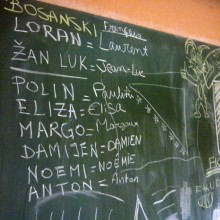 BOSANSKI Français
LORAN = Laurent
ŽAN LUK = Jean-Luc
POLIN = Pauline
ELIZA = Elisa
MARGO = Margaux
DAMIJEN = DAMIEN
NOEMI = NOÉMIE
ANTON = Anton